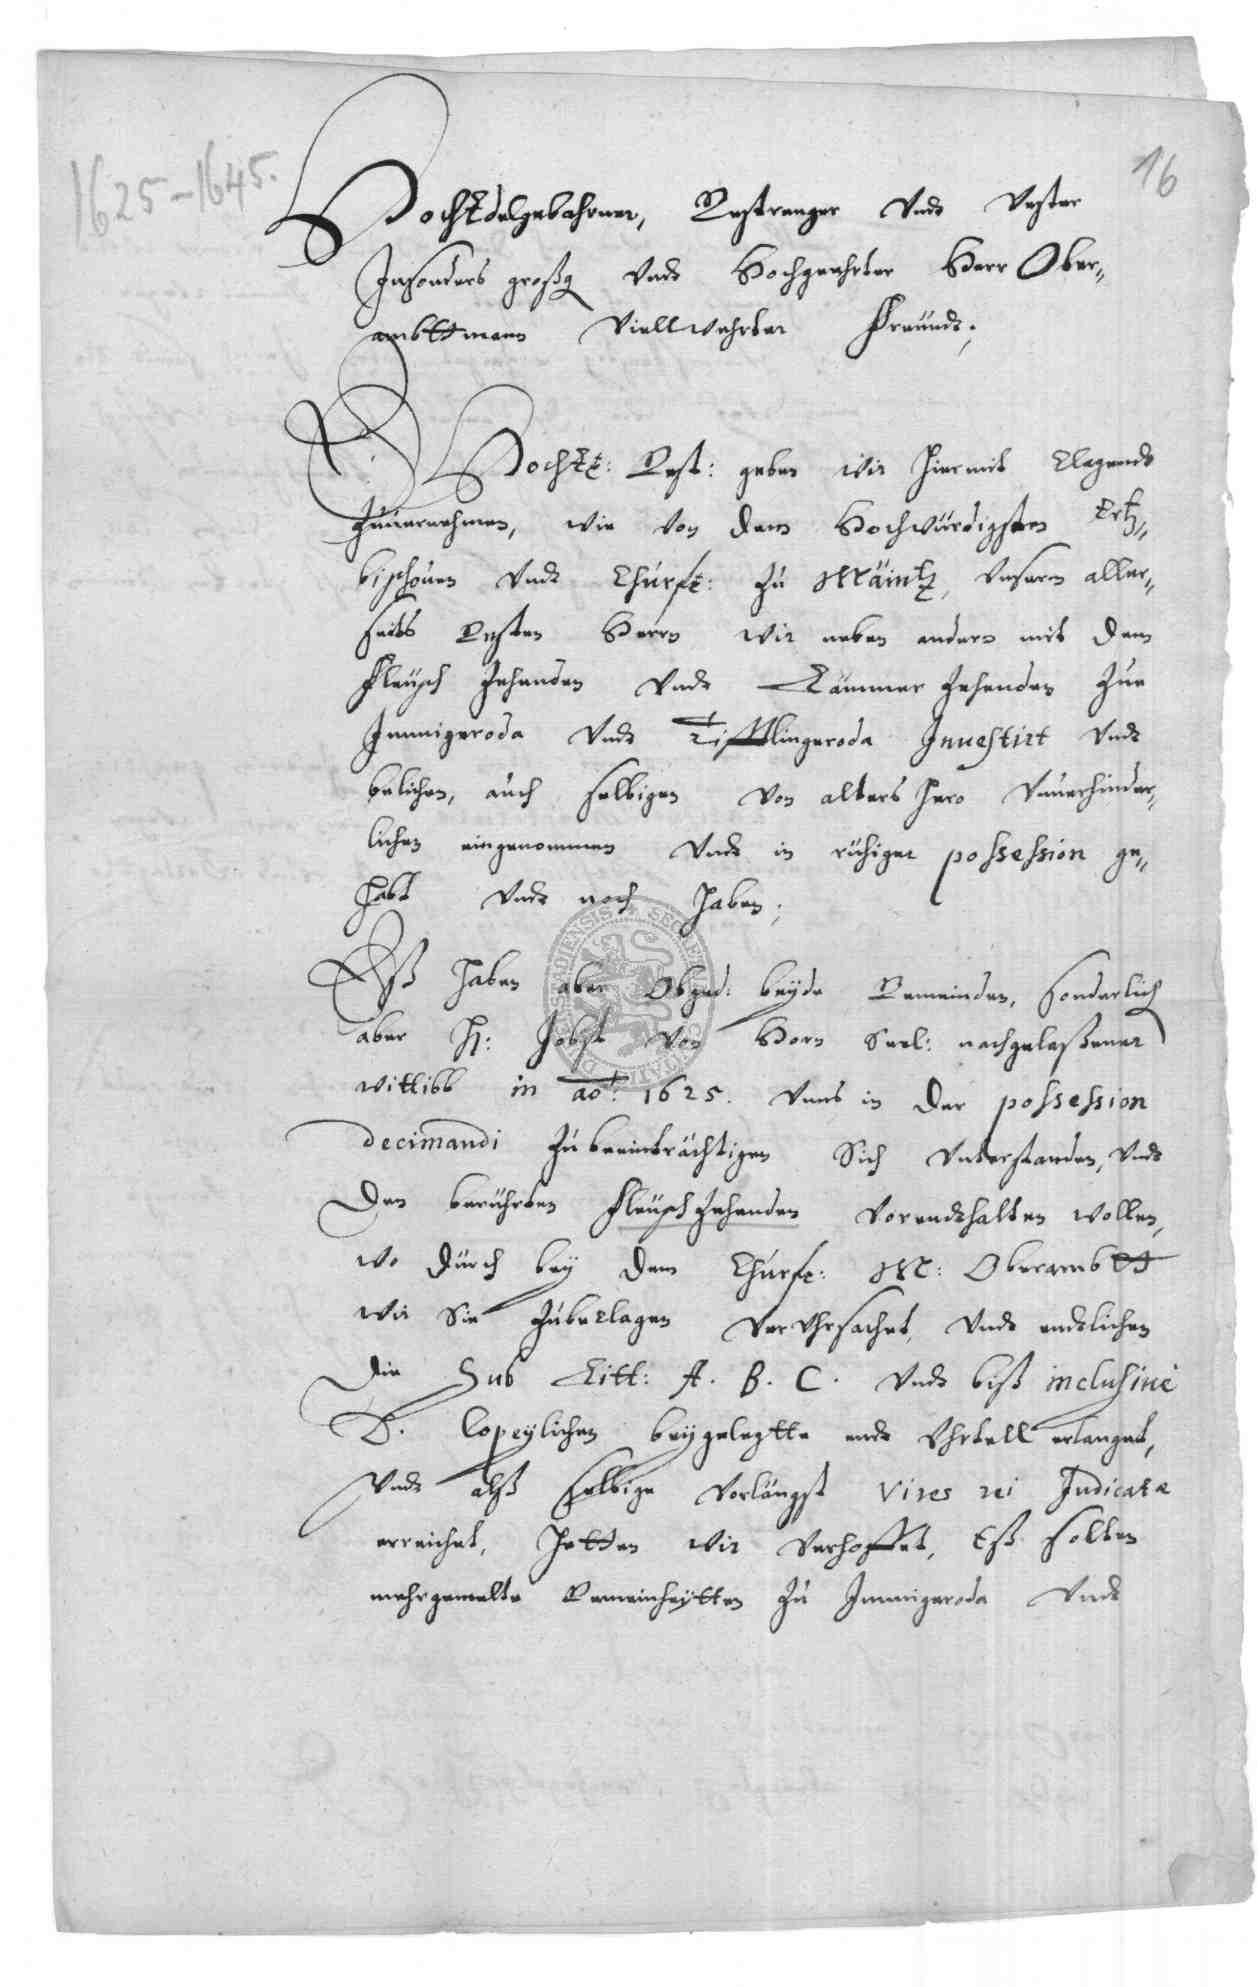 1625-1645.
16
HochEdelgebohrner, Gestrenger Vndt Vester
Insonders großg Vndt Hochgeehrter Herr Ober„
ambttmann Viellwehrter Freundt,
E HochE: Gest: geben wir hiermit Clagendt
Zuuernehmen, wie von dem Hochwürdigsten Ertz„
bischouen Vndt Churf: Zu Mäintz, Vnserm aller„
seits Gnsten Herrn wir neben andern mit dem
Fleisch Zehenden Vndt Lämmer Zehenden Zue
Immigeroda Vndt Tifftlingeroda Inuestirt Vndt
belichen, auch selbigen von alters hero Vnuerhinder„
lichen eingenommen Vndt in ruhiger possession ge„
habt Vndt noch haben,
Eß haben aber Obged: beyde Gemeinden, sonderlich
aber H: Jobst von Horn Seel: nachgelaßener
wittibb in ao: 1625. Vnns in der possession
decimandi Zubeeinträchtigen Sich Vnterstanden, Vndt
den berührten Fleisch Zehenden Vorendthalten wollen,
wo durch bey dem Churf: M: Oberambtt
wir Sie Zubeclagen Ver Vhrsachet, Vndt endtlichen
die Sub Litt: A. B. C. Vndt biß inclusiuè
D. Copeylichen beygelegtte endt Vhrtell erlanget,
Vndt alß selbige Vorlängst vires rei Judicatæ
erreichet, Hetten wir Verhoffet, Eß solten
mehrgemelte Gemeinheytten Zu Immigeroda Vndt